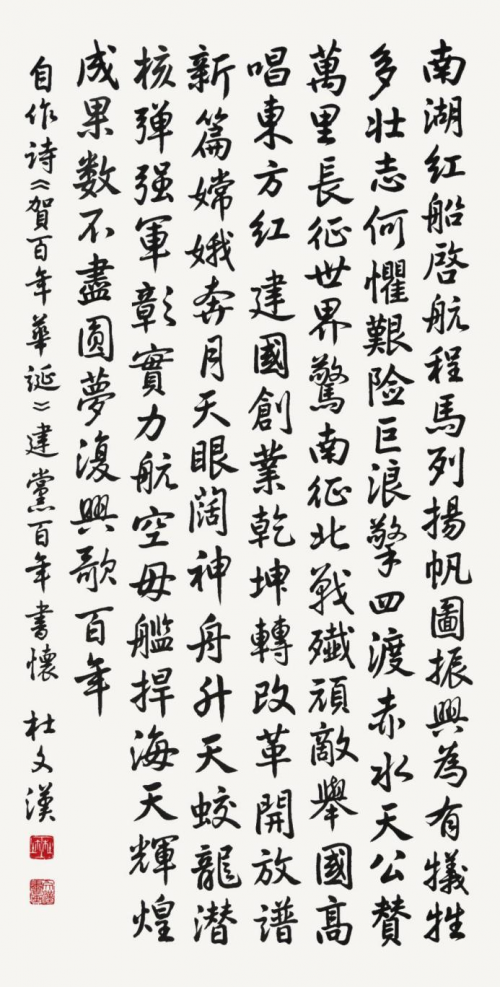 南湖红船啓航程馬列揚帆圖振興為有犧牲
多壮志何懼艱险巨浪擎四渡赤水天公赞
萬里長征世界驚南征北戰殲頑敵舉國高
唱東方红 建國創業乾坤轉改革開放譜
新篇嫦娥奔月天眼阔神舟升天蛟龍潜
核弹强軍彰實力航空母艦捍海天輝煌
成果数不盡圆夢復興歌百年
自作诗《賀百年華誕》建黨百年書懷 杜文漢